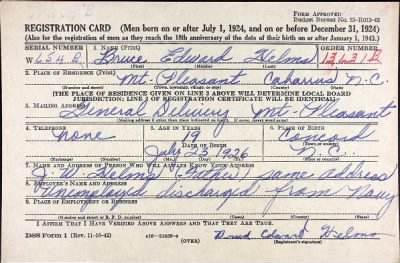 FORM APPROVED
Budget Bureau No. 33-R012-42
REGISTRATION CARD (Men born on or after July 1, 1924, and on or before December 31, 1924)
(Also for the registration of men as they reach the 18th anniversary of the date of their birth on or after January 1, 1943.)
SERIAL NUMBER 1. NAME (Print) ORDER NUMBER
W 654 B Bruce Edward Helms 13631B
(First) (Middle) (Last)
2. PLACE OF RESIDENCE (Print)
Mt. Pleasant Cabarrus N.C.
(Number and street) (Town, township, village, or city) (County) (State)
[THE PLACE OF RESIDENCE GIVEN ON LINE 2 ABOVE WILL DETERMINE LOCAL BOARD
JURISDICTION; LINE 2 OF REGISTRATION CERTIFICATE WILL BE IDENTICAL]
3. MAILING ADDRESS
General Delivery Mt. Pleasant
[Mailing address if other than place indicated on line 2. If same, insert word same]
4. TELEPHONE 5. AGE IN YEARS 6. PLACE OF BIRTH
none 19 Concord
DATE OF BIRTH (Town or county)
July 23 1926 N.C.
(Exchange) (Number) (Mo.) (Day) (Yr.) (State or country)
7. NAME AND ADDRESS OF PERSON WHO WILL ALWAYS KNOW YOUR ADDRESS
J. W. Helms (Father) same address
8. EMPLOYER'S NAME AND ADDRESS
Unemployed discharged from Navy
9. PLACE OF EMPLOYMENT OR BUSINESS
(Number and street or R. F. D. number) (Town) (County) (State)
I AFFIRM THAT I HAVE VERIFIED ABOVE ANSWERS AND THAT THEY ARE TRUE.
DSS Form 1 (Rev. 11-16-42) (OVER) Bruce Edward Helms
(Registrant's signature)